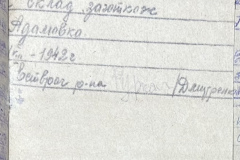 склад заготкож
Адамовка
- 1942 г
Ветврач р-на /Дмитренко